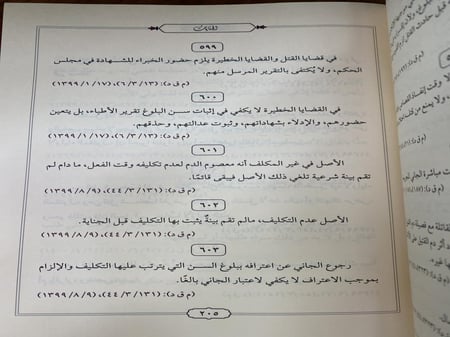 ٥٩٩
في قضايا القتل والقضايا الخطيرة يلزم حضور الخبراء للشهادة في مجلس
الحكم، ولا يُكتفى بالتقرير المرسل منهم.
(م ق د): (٦/٣/١٣)، (١٣٩٩/١/١٧)
٦٠٠
في القضايا الخطيرة لا يكفي في إثبات سن البلوغ تقرير الأطباء، بل يتعين
حضورهم، والإدلاء بشهاداتهم، وثبوت عدالتهم، وحذقهم.
(م ق د): (٦/٣/١٣)، (١٣٩٩/١/١٧)
٦٠١
الأصل في غير المكلف أنه معصوم الدم لعدم تكليفه وقت الفعل، ما دام لم
تقم بينة شرعية تلغي ذلك الأصل فيبقى قائمًا.
(م ق د): (٤٤/٣/١٣١)، (١٣٩٩/٨/٩)
٦٠٢
الأصل عدم التكليف، مالم تقم بينةٌ يثبت بها التكليف قبل الجناية.
(م ق د): (٤٤/٣/١٣١)، (١٣٩٩/٨/٩)
٦٠٣
رجوع الجاني عن اعترافه ببلوغ السن التي يترتب عليها التكليف والإلزام
بموجب الاعتراف لا يكفي لاعتبار الجاني بالغًا.
(م ق د): (٤٤/٣/١٣١)، (١٣٩٩/٨/٩)
٢٠٥